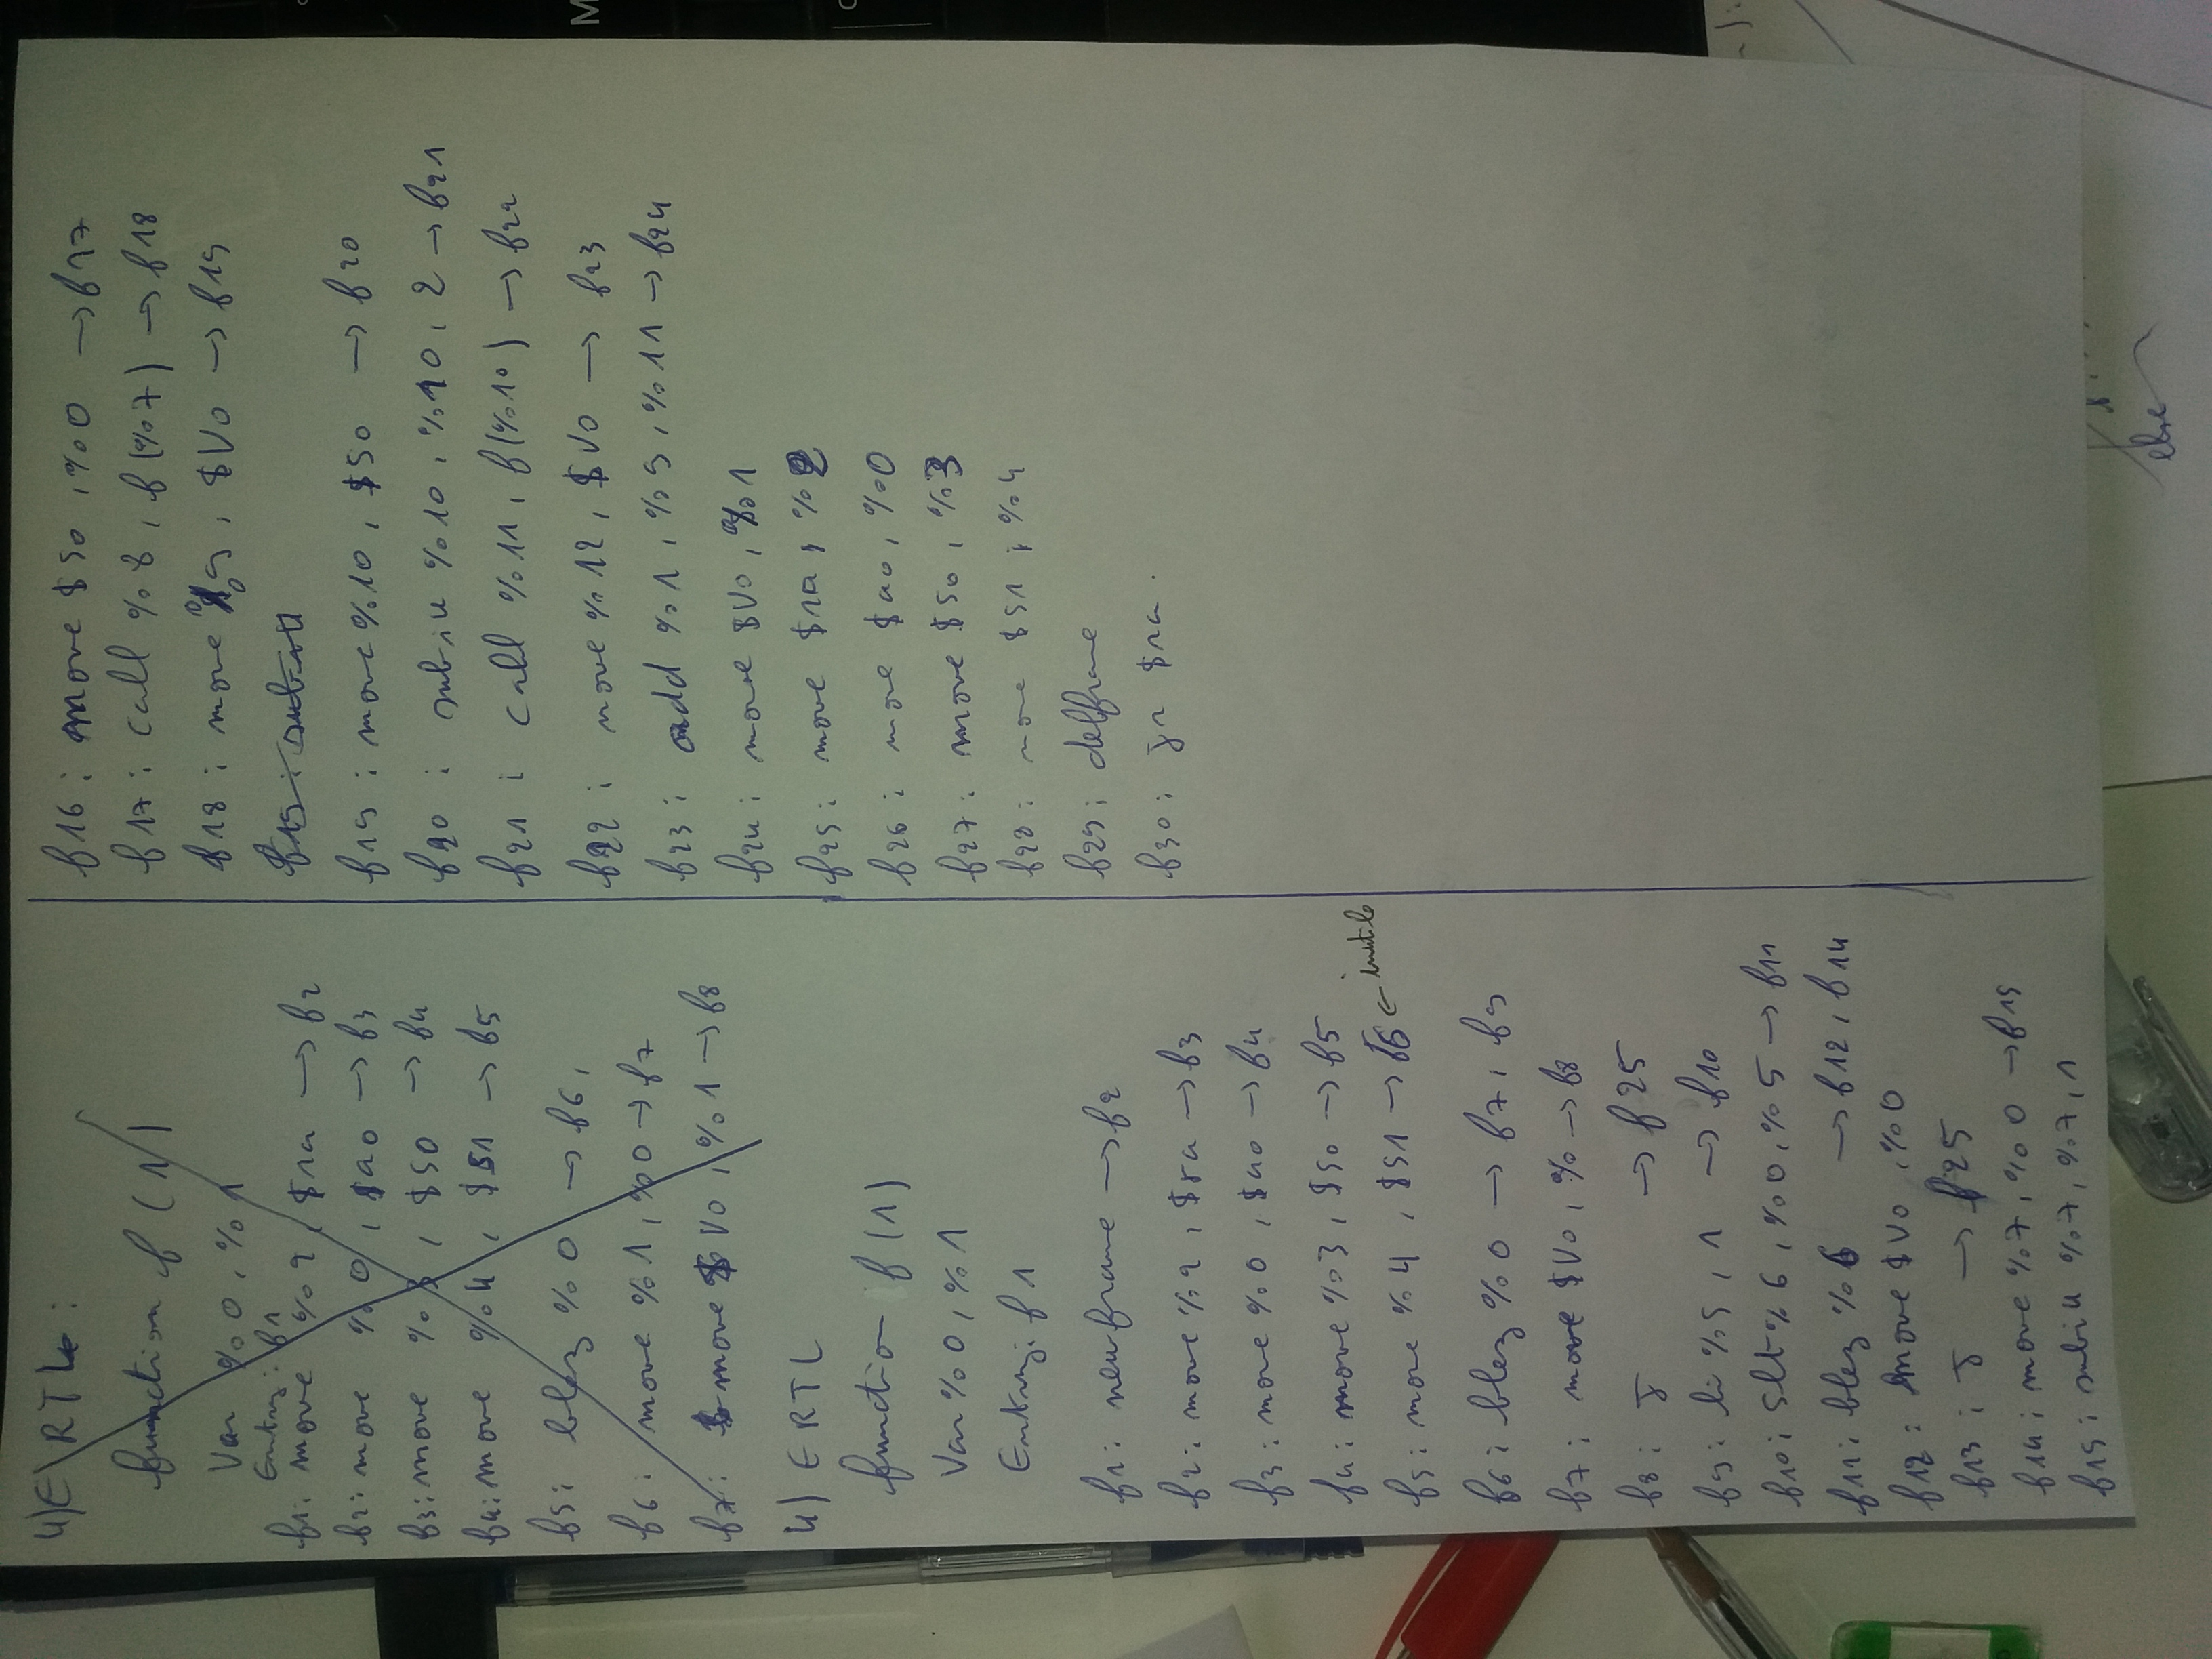 4) ERTL :
function f (1)
Var %0, %1
Entry: f1
f1: move %2, $ra → f2
f2: move %0, $a0 → f3
f3: move %3, $s0 → f4
f4: move %4, $s1 → f5
f5: blez %0 → f6,
f6: move %1, %0 → f7
f7: move $v0, %1 → f8
4) ERTL
function f (1)
Var %0, %1
Entry: f1
f1: newframe → f2
f2: move %2, $ra → f3
f3: move %0, $a0 → f4
f4: move %3, $s0 → f5
f5: move %4, $s1 → f6 ← inutile
f6: blez %0 → f7, f9
f7: move $v0, % → f8
f8: j → f25
f9: li %5, 1 → f10
f10: slt %6, %0, %5 → f11
f11: blez %6 → f12, f14
f12: move $v0, %0
f13: j → f25
f14: move %7, %0 → f15
f15: subiu %7, %7, 1
f16: move $s0, %0 → f17
f17: call %8, f(%7) → f18
f18: move %9, $v0 → f19
f19: subiu
f19: move %10, $s0 → f20
f20: subiu %10, %10, 2 → f21
f21: call %11, f(%10) → f22
f22: move %12, $v0 → f23
f23: add %1, %9, %11 → f24
f24: move $v0, %1
f25: move $ra, %2
f26: move $a0, %0
f27: move $s0, %3
f28: move $s1, %4
f29: delframe
f30: jr $ra.
else